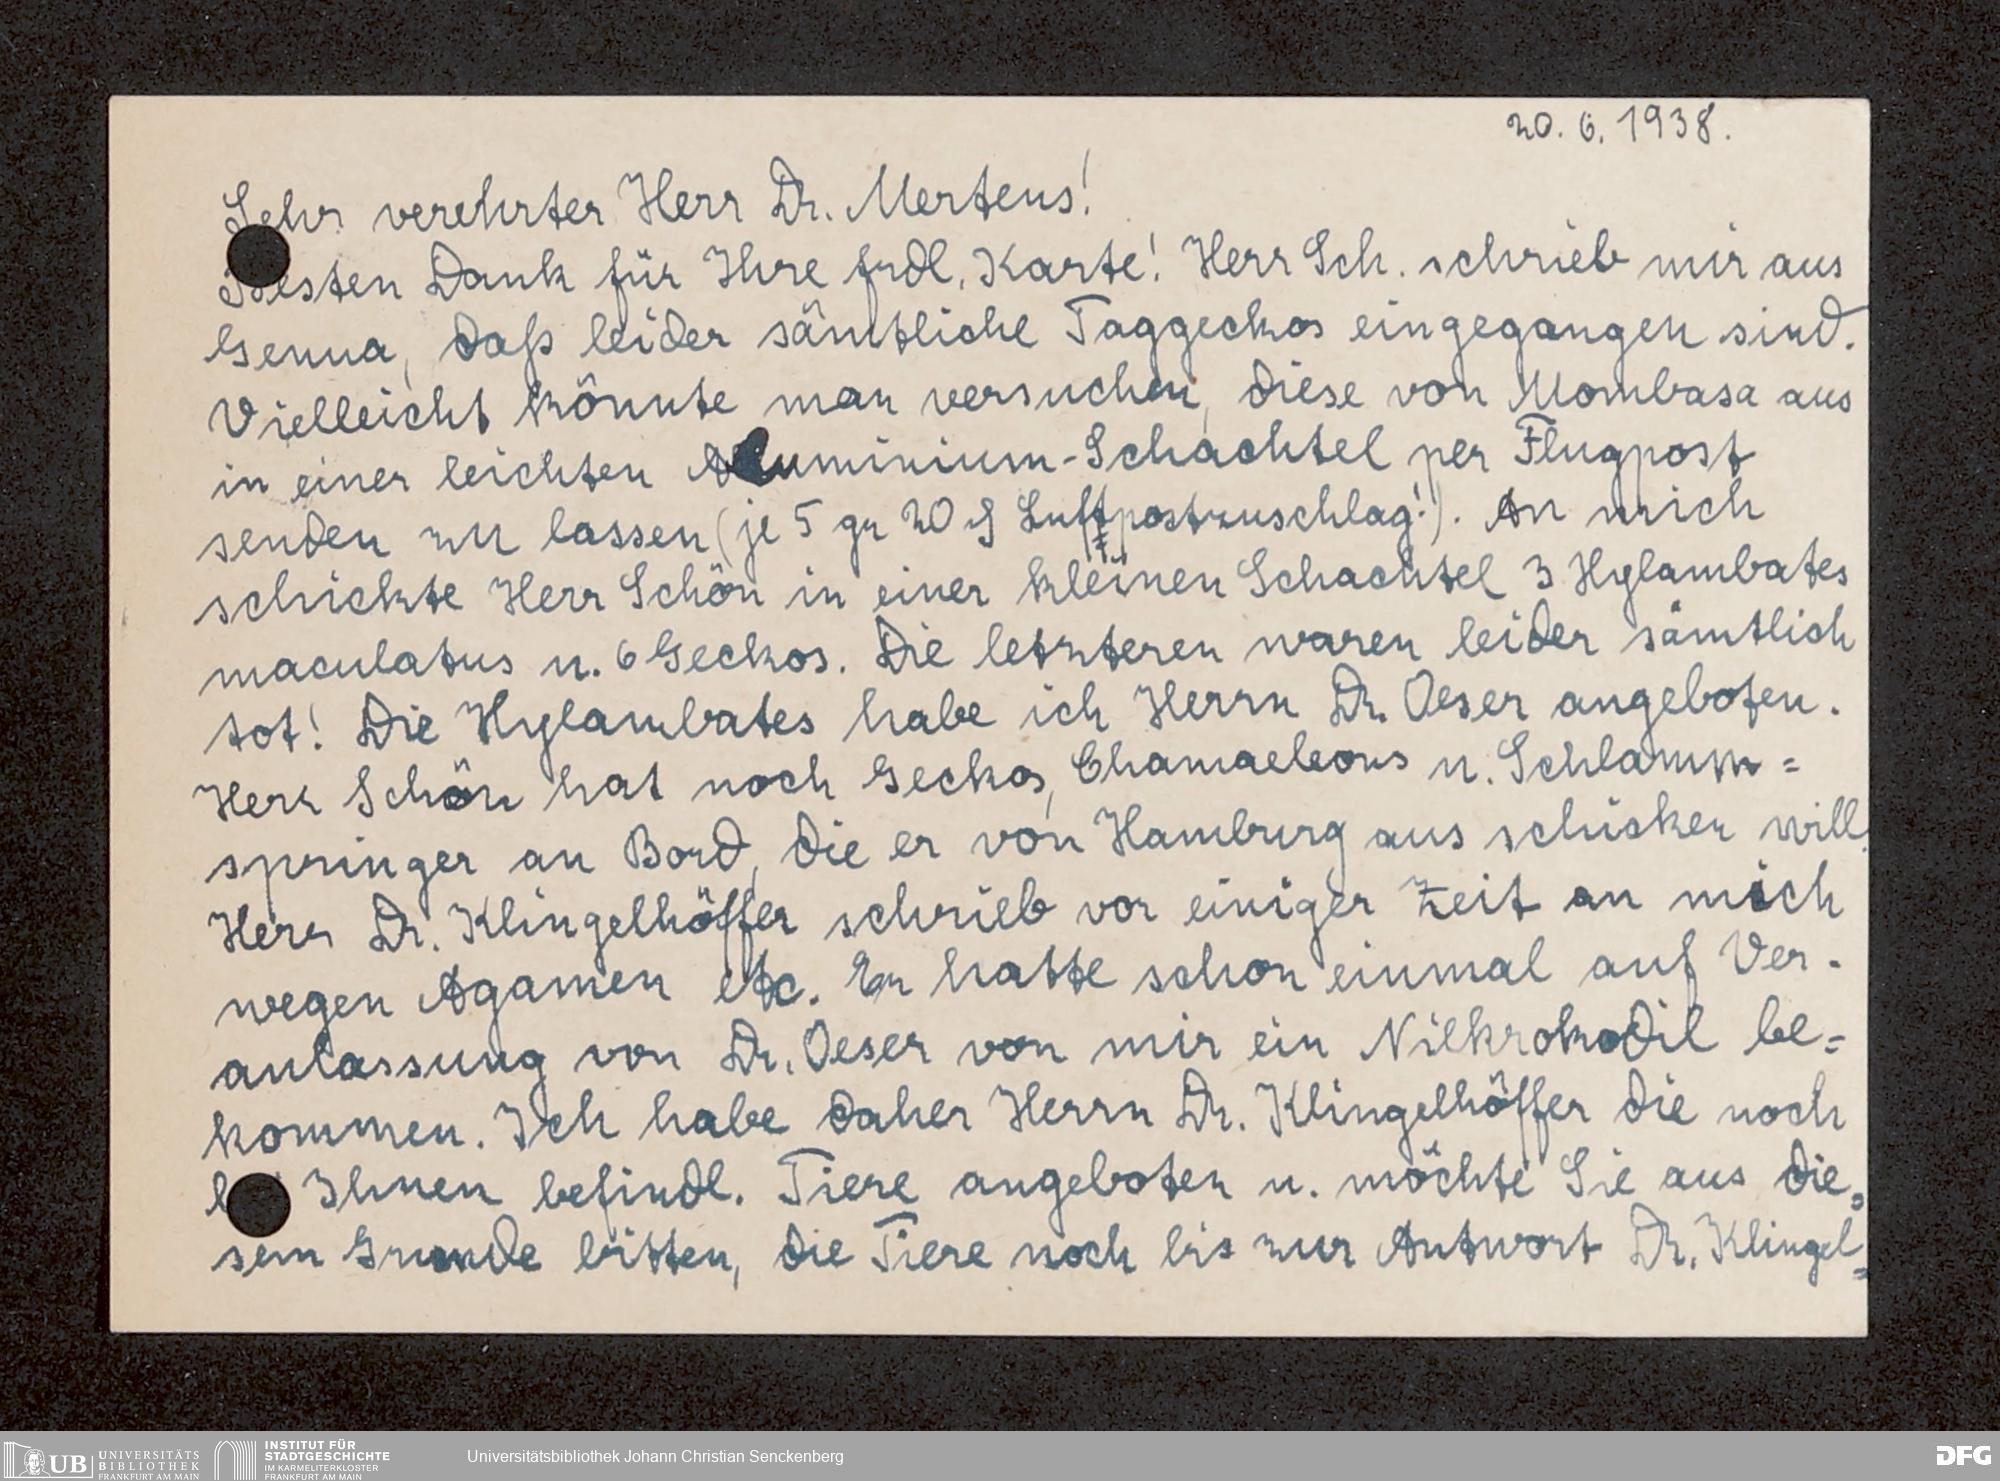 20. 6. 1938.
Sehr verehrter Herr Dr. Mertens!
Besten Dank für Ihre frdl. Karte! Herr Sch. schrieb mir aus
Genua, daß leider sämtliche Taggeckos eingegangen sind.
Vielleicht könnte man versuchen, diese von Mombasa aus
in einer leichten Aluminium-Schachtel per Flugpost
senden zu lassen (je 5 gr 20 ₰ Luftpostzuschlag!). An mich
schickte Herr Schön in einer kleinen Schachtel 3 Hylambates
maculatus u. 6 Geckos. Die letzteren waren leider sämtlich
tot! Die Hylambates habe ich Herrn Dr. Oeser angeboten.
Herr Schön hat noch Geckos, Chamaeleons u. Schlamm=
springer an Bord, die er von Hamburg aus schicken will.
Herr Dr. Klingelhöffer schrieb vor einiger Zeit an mich
wegen Agamen etc. Er hatte schon einmal auf Ver-
anlassung von Dr. Oeser von mir ein Nilkrokodil be=
kommen. Ich habe daher Herrn Dr. Klingelhöffer die noch
Ihnen befindl. Tiere angeboten u. möchte Sie aus die=
sem Grunde bitten, die Tiere noch bis zur Antwort Dr. Klingel=
UB UNIVERSITÄTS BIBLIOTHEK FRANKFURT AM MAIN
INSTITUT FÜR STADTGESCHICHTE IM KARMELITERKLOSTER FRANKFURT AM MAIN
Universitätsbibliothek Johann Christian Senckenberg
DFG